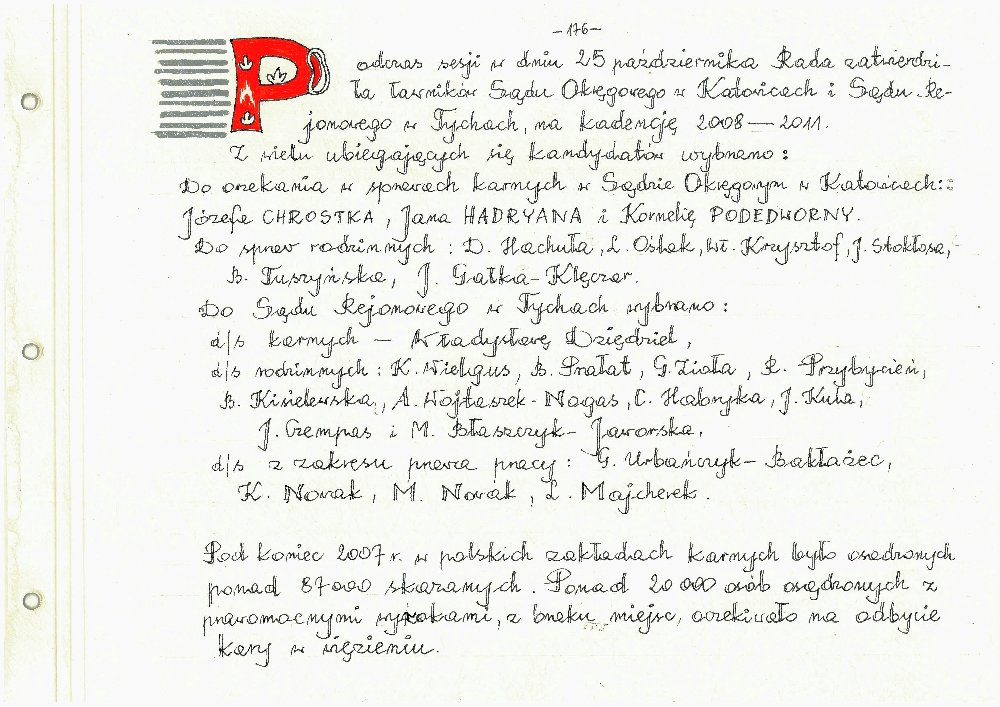 -176-
Podczas sesji w dniu 25 października Rada zatwierdzi-
ła ławników Sądu Okręgowego w Katowicach i Sądu Re-
jonowego w Tychach, na kadencję 2008 — 2011.
Z wielu ubiegających się kandydatów wybrano:
Do orzekania w sprawach karnych w Sądzie Okręgowym w Katowicach::
Józefa CHROSTKA, Jana HADRYANA i Kornelię PODEDWORNY.
Do spraw rodzinnych: D. Hachuła, L. Oslak, Wł. Krzysztof, J. Stokłosa,
B. Tuszyńska, J. Gałka-Klęczar.
Do Sądu Rejonowego w Tychach wybrano:
d/s karnych — Władysławę Dzięgiel,
d/s rodzinnych: K. Wieligus, B. Prałat, G. Zioła, R. Przybycień,
B. Kisielewska, A. Wojtaszek-Nogas, C. Habryka, J. Kula,
J. Czempas i M. Błaszczyk-Jaworska,
d/s z zakresu prawa pracy: G. Urbańczyk-Bakłażec,
K. Nowak, M. Nowak, L. Majcherek.
Pod koniec 2007 r. w polskich zakładach karnych było osadzonych
ponad 87000 skazanych. Ponad 20000 osób osądzonych z
prawomocnymi wyrokami, z braku miejsc, oczekiwało na odbycie
kary w więzieniu.